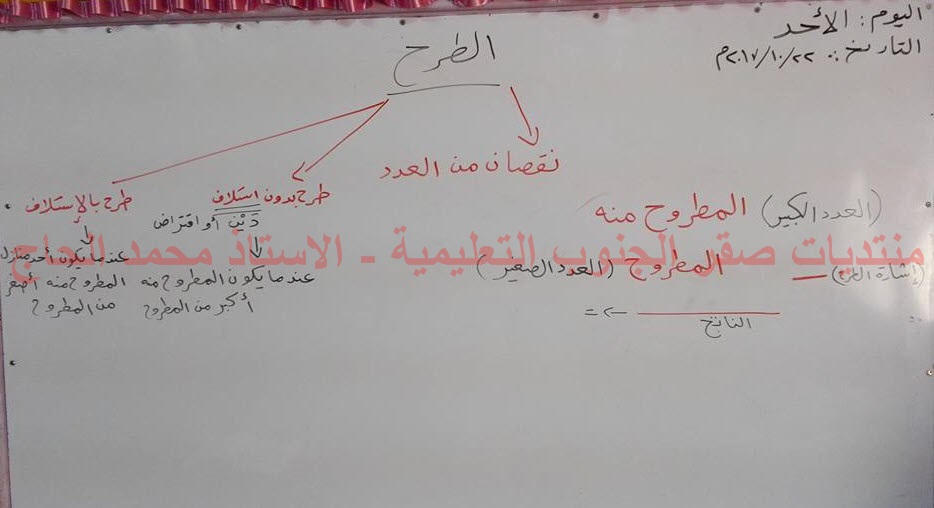 اليوم: الأحد
التاريخ: ٢٠١٧/١٠/٢٢م
الطرح
نقصان من العدد
طرح بدون استلاف
دَيْن أو اقتراض
عندما يكون المطروح منه
أكبر من المطروح
طرح بالإستلاف
عندما يكون أحد منازل
المطروح منه أصغر
من المطروح
(العدد الكبير) المطروح منه
(إشارة الطرح) — المطروح (العدد الصغير)
الناتج
=
منتديات صقر الجنوب التعليمية - الاستاذ محمد الحاج